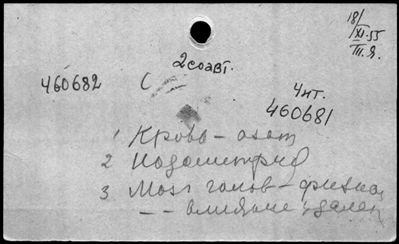 18/XI.55
Ш.Я.
2 соавт.
460682 С
4 нт.
460681
1 Кровь - азот
2 Иодометрия
3 Мозг голов - физиол
- - влияние удален